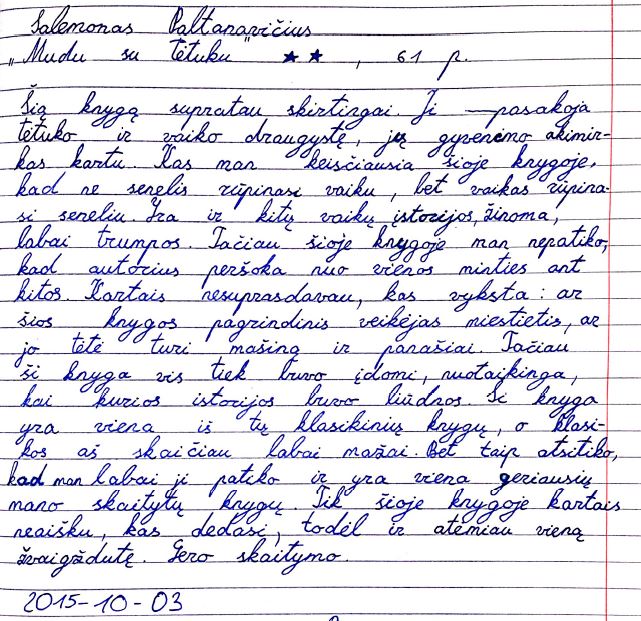 Salemonas Paltanavičius
„Mudu su tėtuku" ★★, 61 p.
Šią knygą supratau skirtingai. Ji — pasakoja
tėtuko ir vaiko draugystę, jų gyvenimo akimir-
kas kartu. Kas man keisčiausia šioje knygoje,
kad ne senelis rūpinasi vaiku, bet vaikas rūpina-
si seneliu. Yra ir kitų vaikų istorijos, žinoma,
labai trumpos. Tačiau šioje knygoje man nepatiko,
kad autorius peršoka nuo vienos minties ant
kitos. Kartais nesuprasdavau, kas vyksta: ar
šios knygos pagrindinis veikėjas miestietis, ar
jo tėtė turi mašiną ir panašiai. Tačiau
ši knyga vis tiek buvo įdomi, nuotaikinga,
kai kurios istorijos buvo liūdnos. Ši knyga
yra viena iš tų klasikinių knygų, o klasi-
kos aš skaičiau labai mažai. Bet taip atsitiko,
kad man labai ji patiko ir yra viena geriausių
mano skaitytų knygų. Tik šioje knygoje kartais
neaišku, kas dedasi, todėl ir atėmiau vieną
žvaigždutę. Gero skaitymo.
2015-10-03